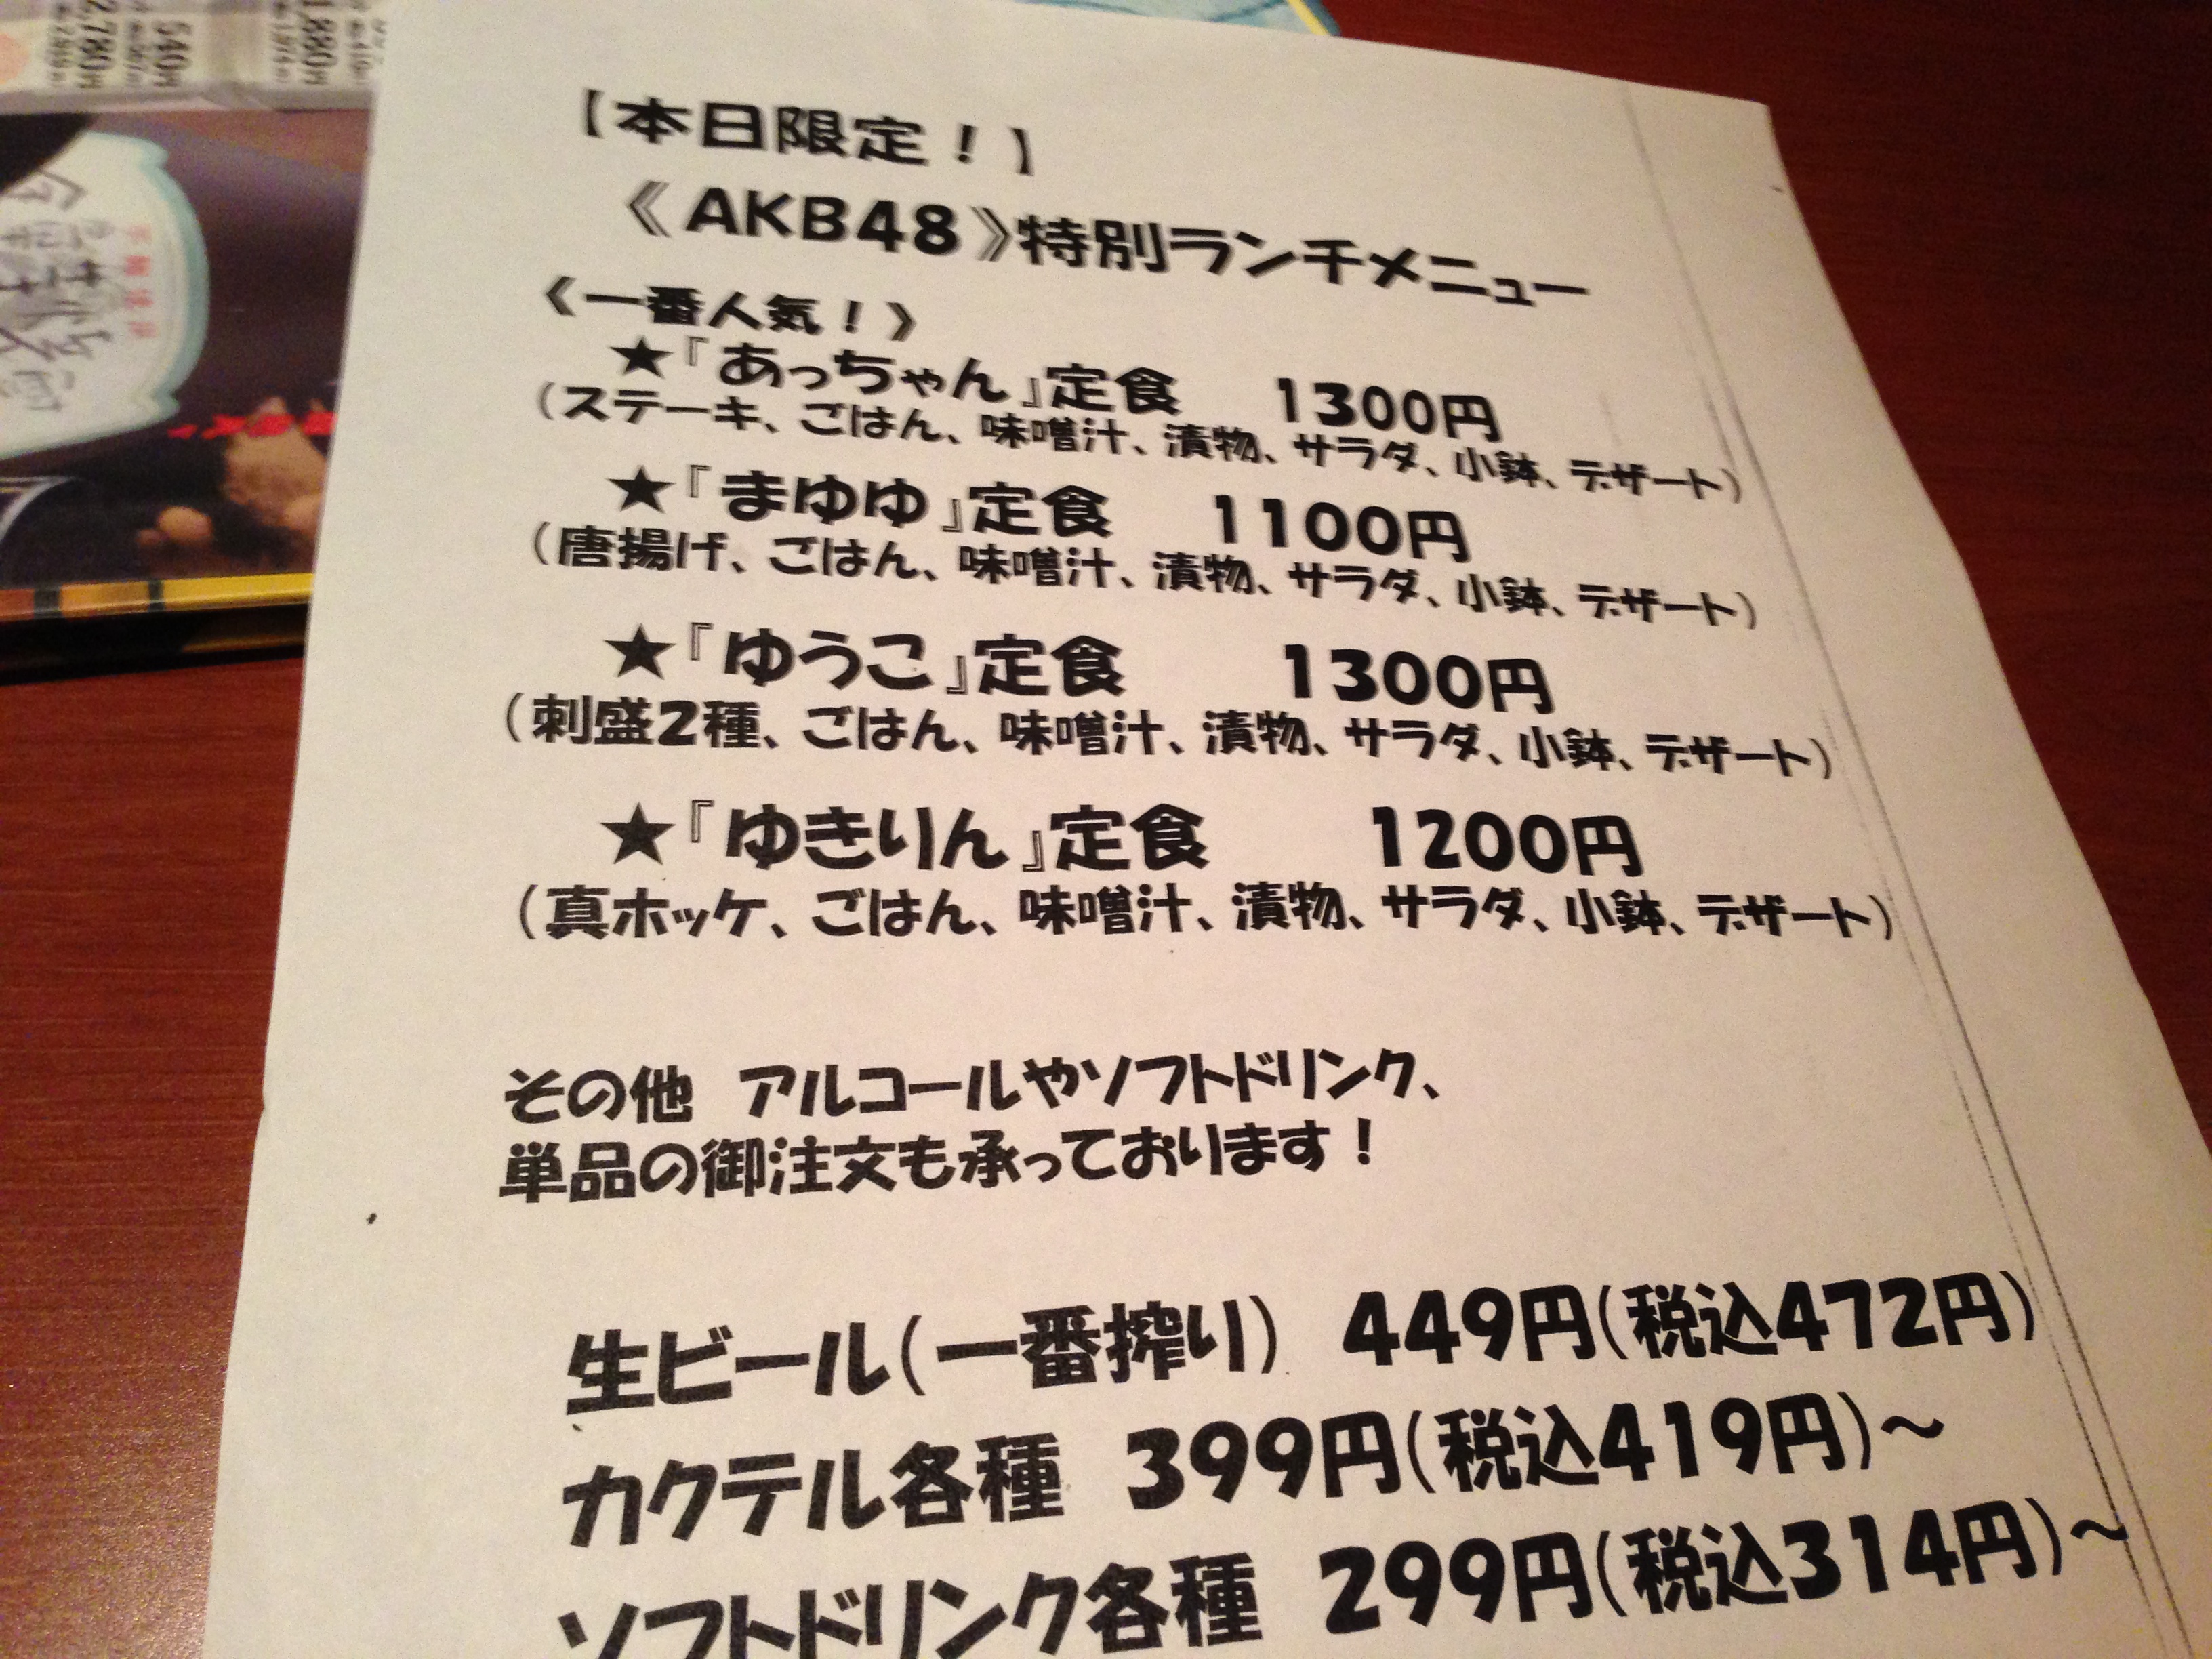 【本日限定！】
《AKB48》特別ランチメニュー
《一番人気！》
★『あっちゃん』定食　1300円
（ステーキ、ごはん、味噌汁、漬物、サラダ、小鉢、デザート）
★『まゆゆ』定食　1100円
（唐揚げ、ごはん、味噌汁、漬物、サラダ、小鉢、デザート）
★『ゆうこ』定食　1300円
（刺盛2種、ごはん、味噌汁、漬物、サラダ、小鉢、デザート）
★『ゆきりん』定食　1200円
（真ホッケ、ごはん、味噌汁、漬物、サラダ、小鉢、デザート）
その他　アルコールやソフトドリンク、
単品の御注文も承っております！
生ビール（一番搾り）　449円（税込472円）
カクテル各種　399円（税込419円）～
ソフトドリンク各種　299円（税込314円）～
2,780円
540円
1,880円